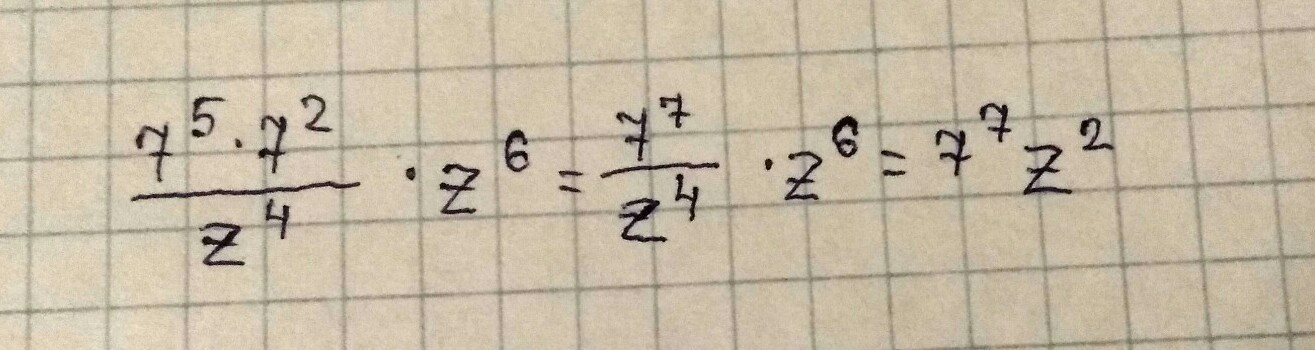 \frac{7^5 \cdot 7^2}{z^4} \cdot z^6 = \frac{7^7}{z^4} \cdot z^6 = 7^7 z^2